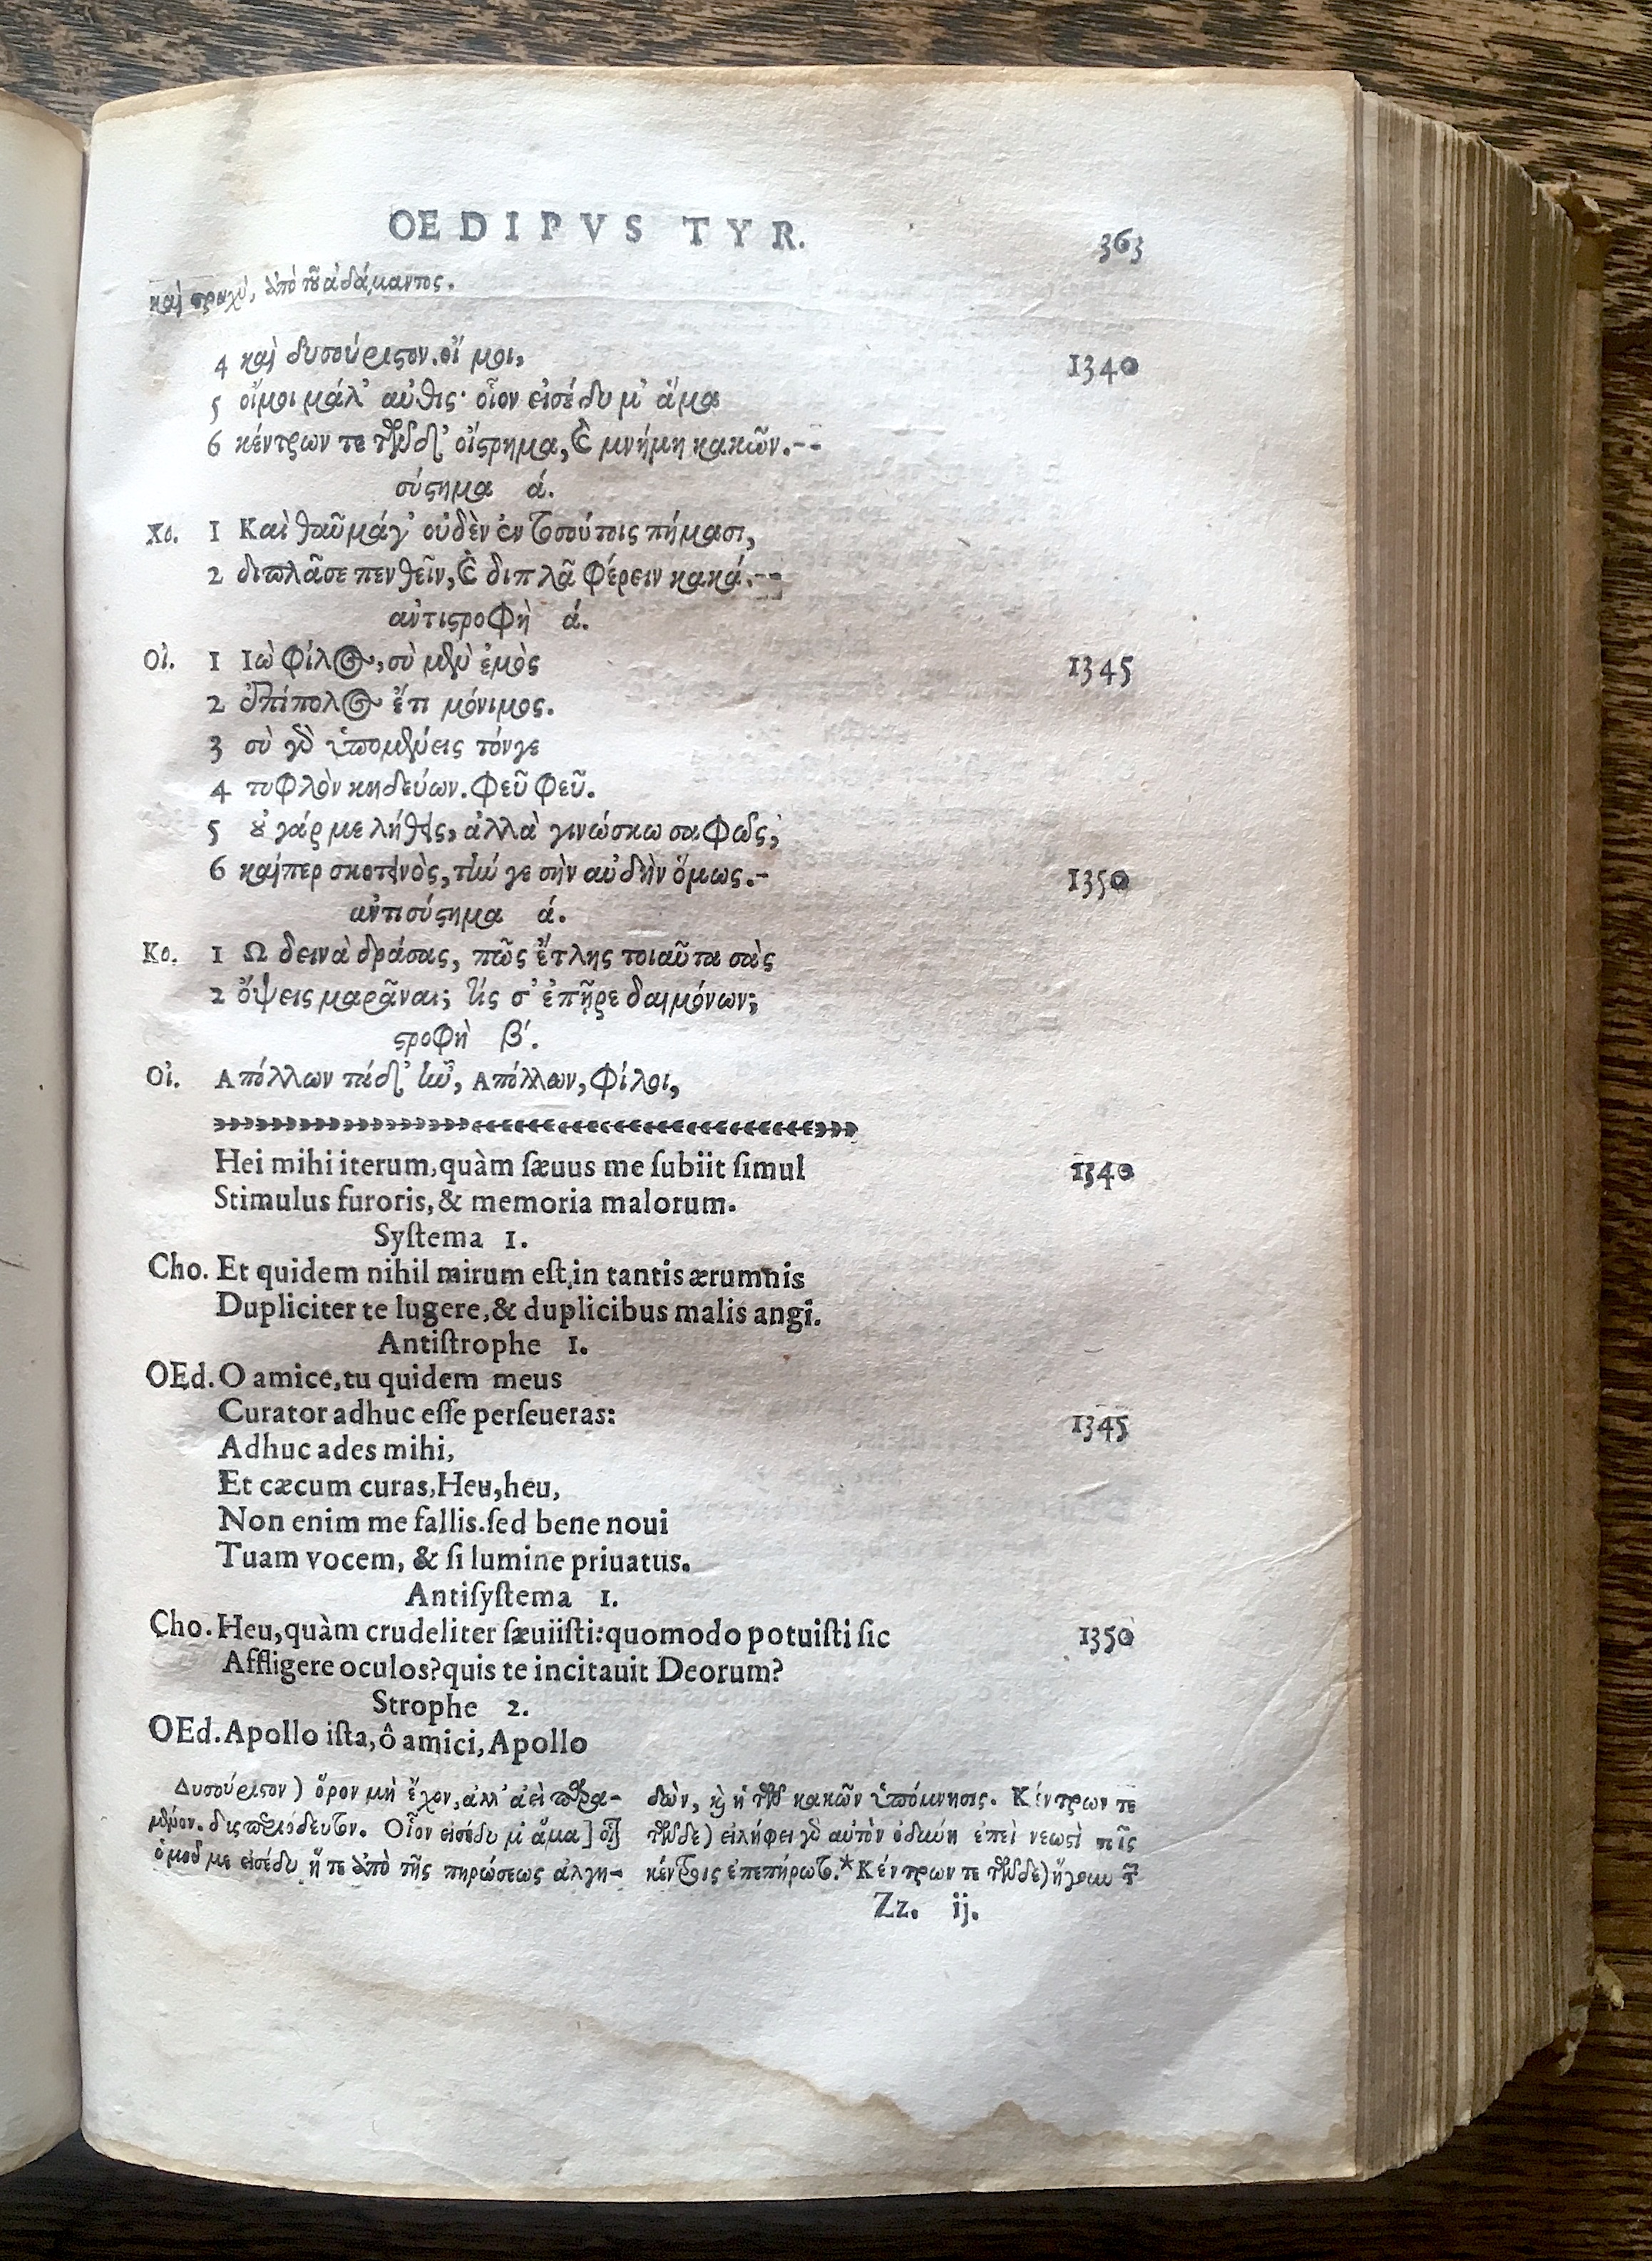 OEDIPVS TYR. 363
καὶ τραχὺ, ἀπὸ τοῦ ἀδάμαντος.
4 καὶ δυσούριστον. οἴ μοι, 1340
5 οἴμοι μάλ' αὖθις· οἷον εἰσέδυ μ' ἅμα
6 κέντρων τε τῶνδ' οἴστρημα, καὶ μνήμη κακῶν.--
σύστημα ά.
Χο. 1 Καὶ θαῦμά γ' οὐδὲν ἐν τοσούτοις πήμασι,
2 διπλᾶ σε πενθεῖν, καὶ διπλᾶ φέρειν κακά.--
ἀντιστροφὴ ά.
Οἰ. 1 Ιὼ φίλος, σὺ μὲν ἐμὸς 1345
2 ἐπίπολος ἔτι μόνιμος.
3 σὺ γὰρ ὑπομένεις τόνγε
4 τυφλὸν κηδεύων. φεῦ φεῦ.
5 οὐ γάρ με λήθεις, ἀλλὰ γινώσκω σαφῶς,
6 καίπερ σκοτεινὸς, τήν γε σὴν αὐδὴν ὅμως.- 1350
ἀντισύστημα ά.
Κο. 1 Ω δεινὰ δράσας, πῶς ἔτλης τοιαῦτα σὰς
2 ὄψεις μαρᾶναι; τίς σ' ἐπῆρε δαιμόνων;
στροφὴ β'.
Οἰ. Απόλλων τάδ' ἦν, Απόλλων, φίλοι,
Hei mihi iterum, quàm sæuus me subiit simul 1340
Stimulus furoris, & memoria malorum.
Systema 1.
Cho. Et quidem nihil mirum est, in tantis ærumnis
Dupliciter te lugere, & duplicibus malis angi.
Antistrophe 1.
OEd. O amice, tu quidem meus
Curator adhuc esse perseueras: 1345
Adhuc ades mihi,
Et cæcum curas, Heu, heu,
Non enim me fallis. sed bene noui
Tuam vocem, & si lumine priuatus.
Antisystema 1.
Cho. Heu, quàm crudeliter sæuiisti: quomodo potuisti sic 1350
Affligere oculos? quis te incitauit Deorum?
Strophe 2.
OEd. Apollo ista, ô amici, Apollo
Δυσούριστον) ὅρον μὴ ἔχον, ἀλλ' ἀεὶ παρα-
μένον. δυσπεριόδευτον. Οἷον εἰσέδυ μ' ἅμα]
ὁμοῦ με εἰσέδυ ἥ τε ἀπὸ τῆς πηρώσεως ἀλγη-
δὼν, καὶ ἡ τῶν κακῶν ὑπόμνησις. Κέντρων τε
τῶνδε) εἰλήφει γὰρ αὐτὸν ὀδύνη ἐπεὶ νεωστὶ τοῖς
κέντροις ἐπεπήρωτο.* Κέντρων τε τῶνδε) ἤγουν τῶν
Zz. ij.